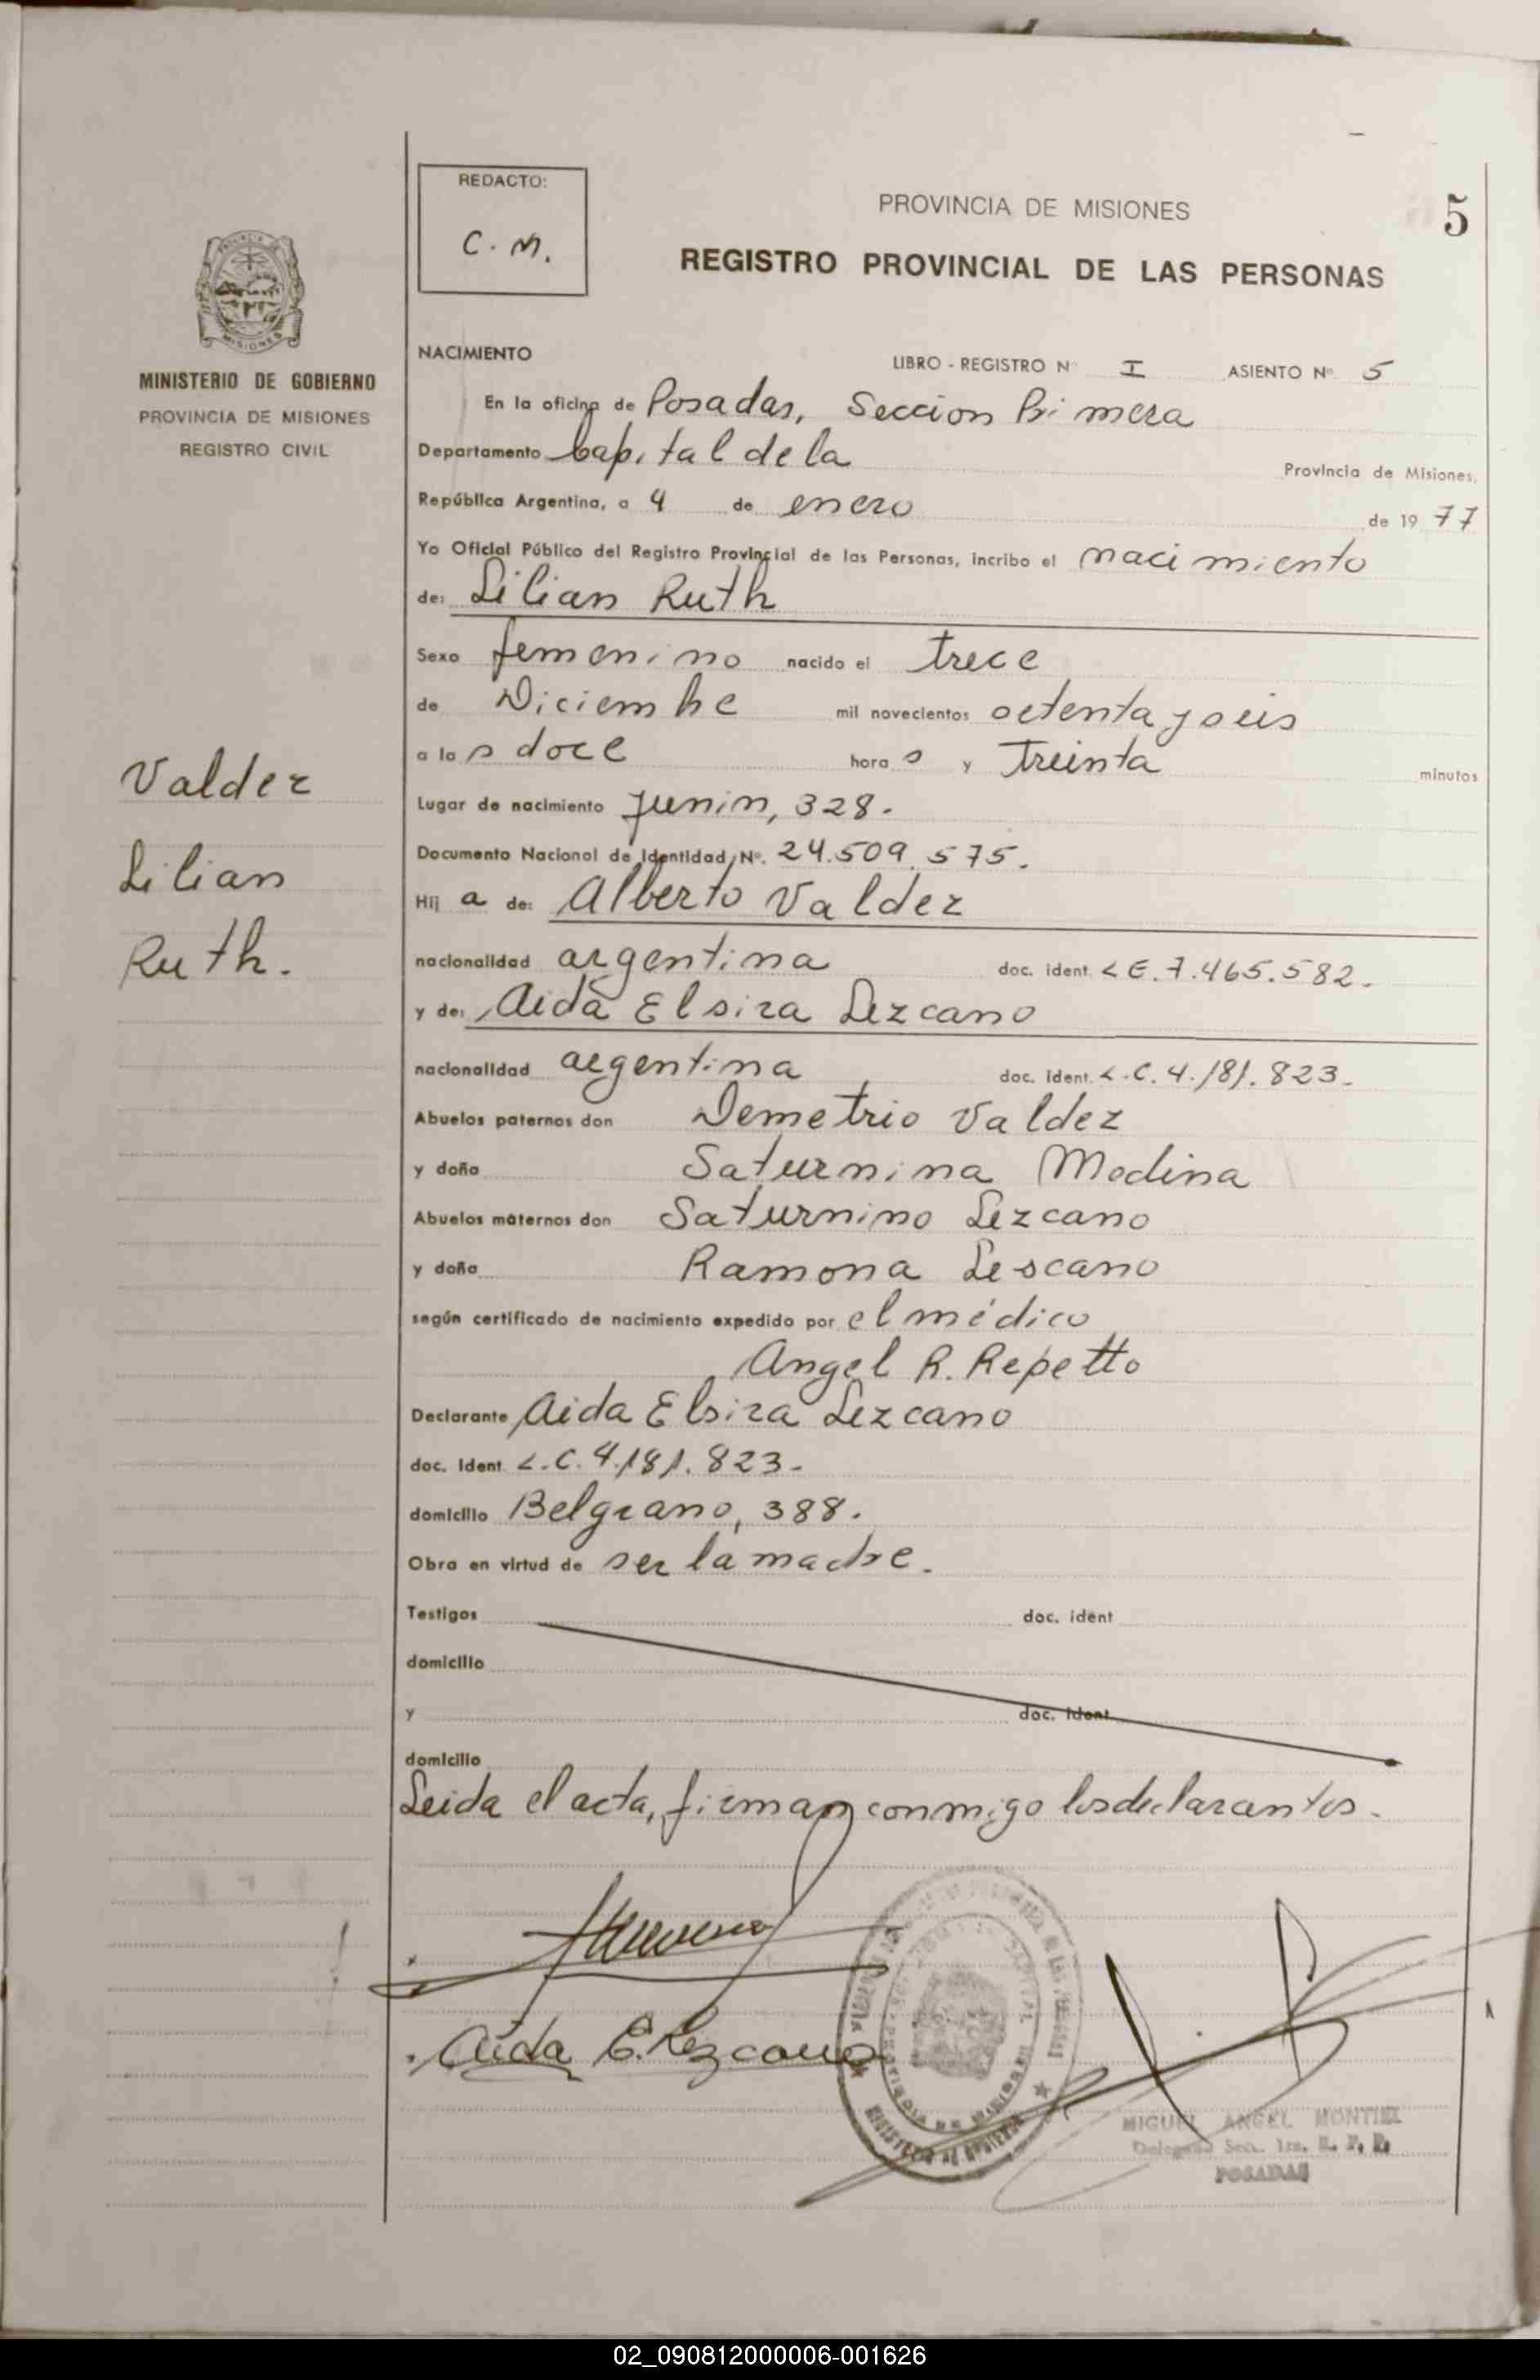 REDACTO:
C. M.
PROVINCIA DE MISIONES
5
REGISTRO PROVINCIAL DE LAS PERSONAS
MISIONES
MINISTERIO DE GOBIERNO
PROVINCIA DE MISIONES
REGISTRO CIVIL
NACIMIENTO LIBRO - REGISTRO Nº I ASIENTO Nº 5
En la oficina de Posadas, Seccion Primera
Departamento Capital de la Provincia de Misiones,
República Argentina, a 4 de enero de 1977
Yo Oficial Público del Registro Provincial de las Personas, incribo el nacimiento
de: Lilian Ruth
Sexo femenino nacido el trece
de Diciembre mil novecientos setenta y seis
a las doce horas y treinta minutos
Valdez
Lilian
Ruth.
Lugar de nacimiento Junin, 328.
Documento Nacional de Identidad Nº. 24.509.575.
Hija de: Alberto Valdez
nacionalidad argentina doc. ident. L E. 7.465.582.
y de: Aida Elsira Lezcano
nacionalidad argentina doc. ident. L.C. 4.181.823.
Abuelos paternos don Demetrio Valdez
y doña Saturnina Medina
Abuelos maternos don Saturnino Lezcano
y doña Ramona Lescano
según certificado de nacimiento expedido por el médico
Angel R. Repetto
Declarante Aida Elsira Lezcano
doc. ident. L.C. 4.181.823.
domicilio Belgrano, 388.
Obra en virtud de ser la madre.
Testigos doc. ident
domicilio
y doc. ident
domicilio
Leida el acta, firman conmigo los declarantes.
Aida E. Lezcano
MINISTERIO DE GOBIERNO
MIGUEL ANGEL MONTIEL
Delegado Secc. 1ra. R. P. P.
POSADAS
02_090812000006-001626